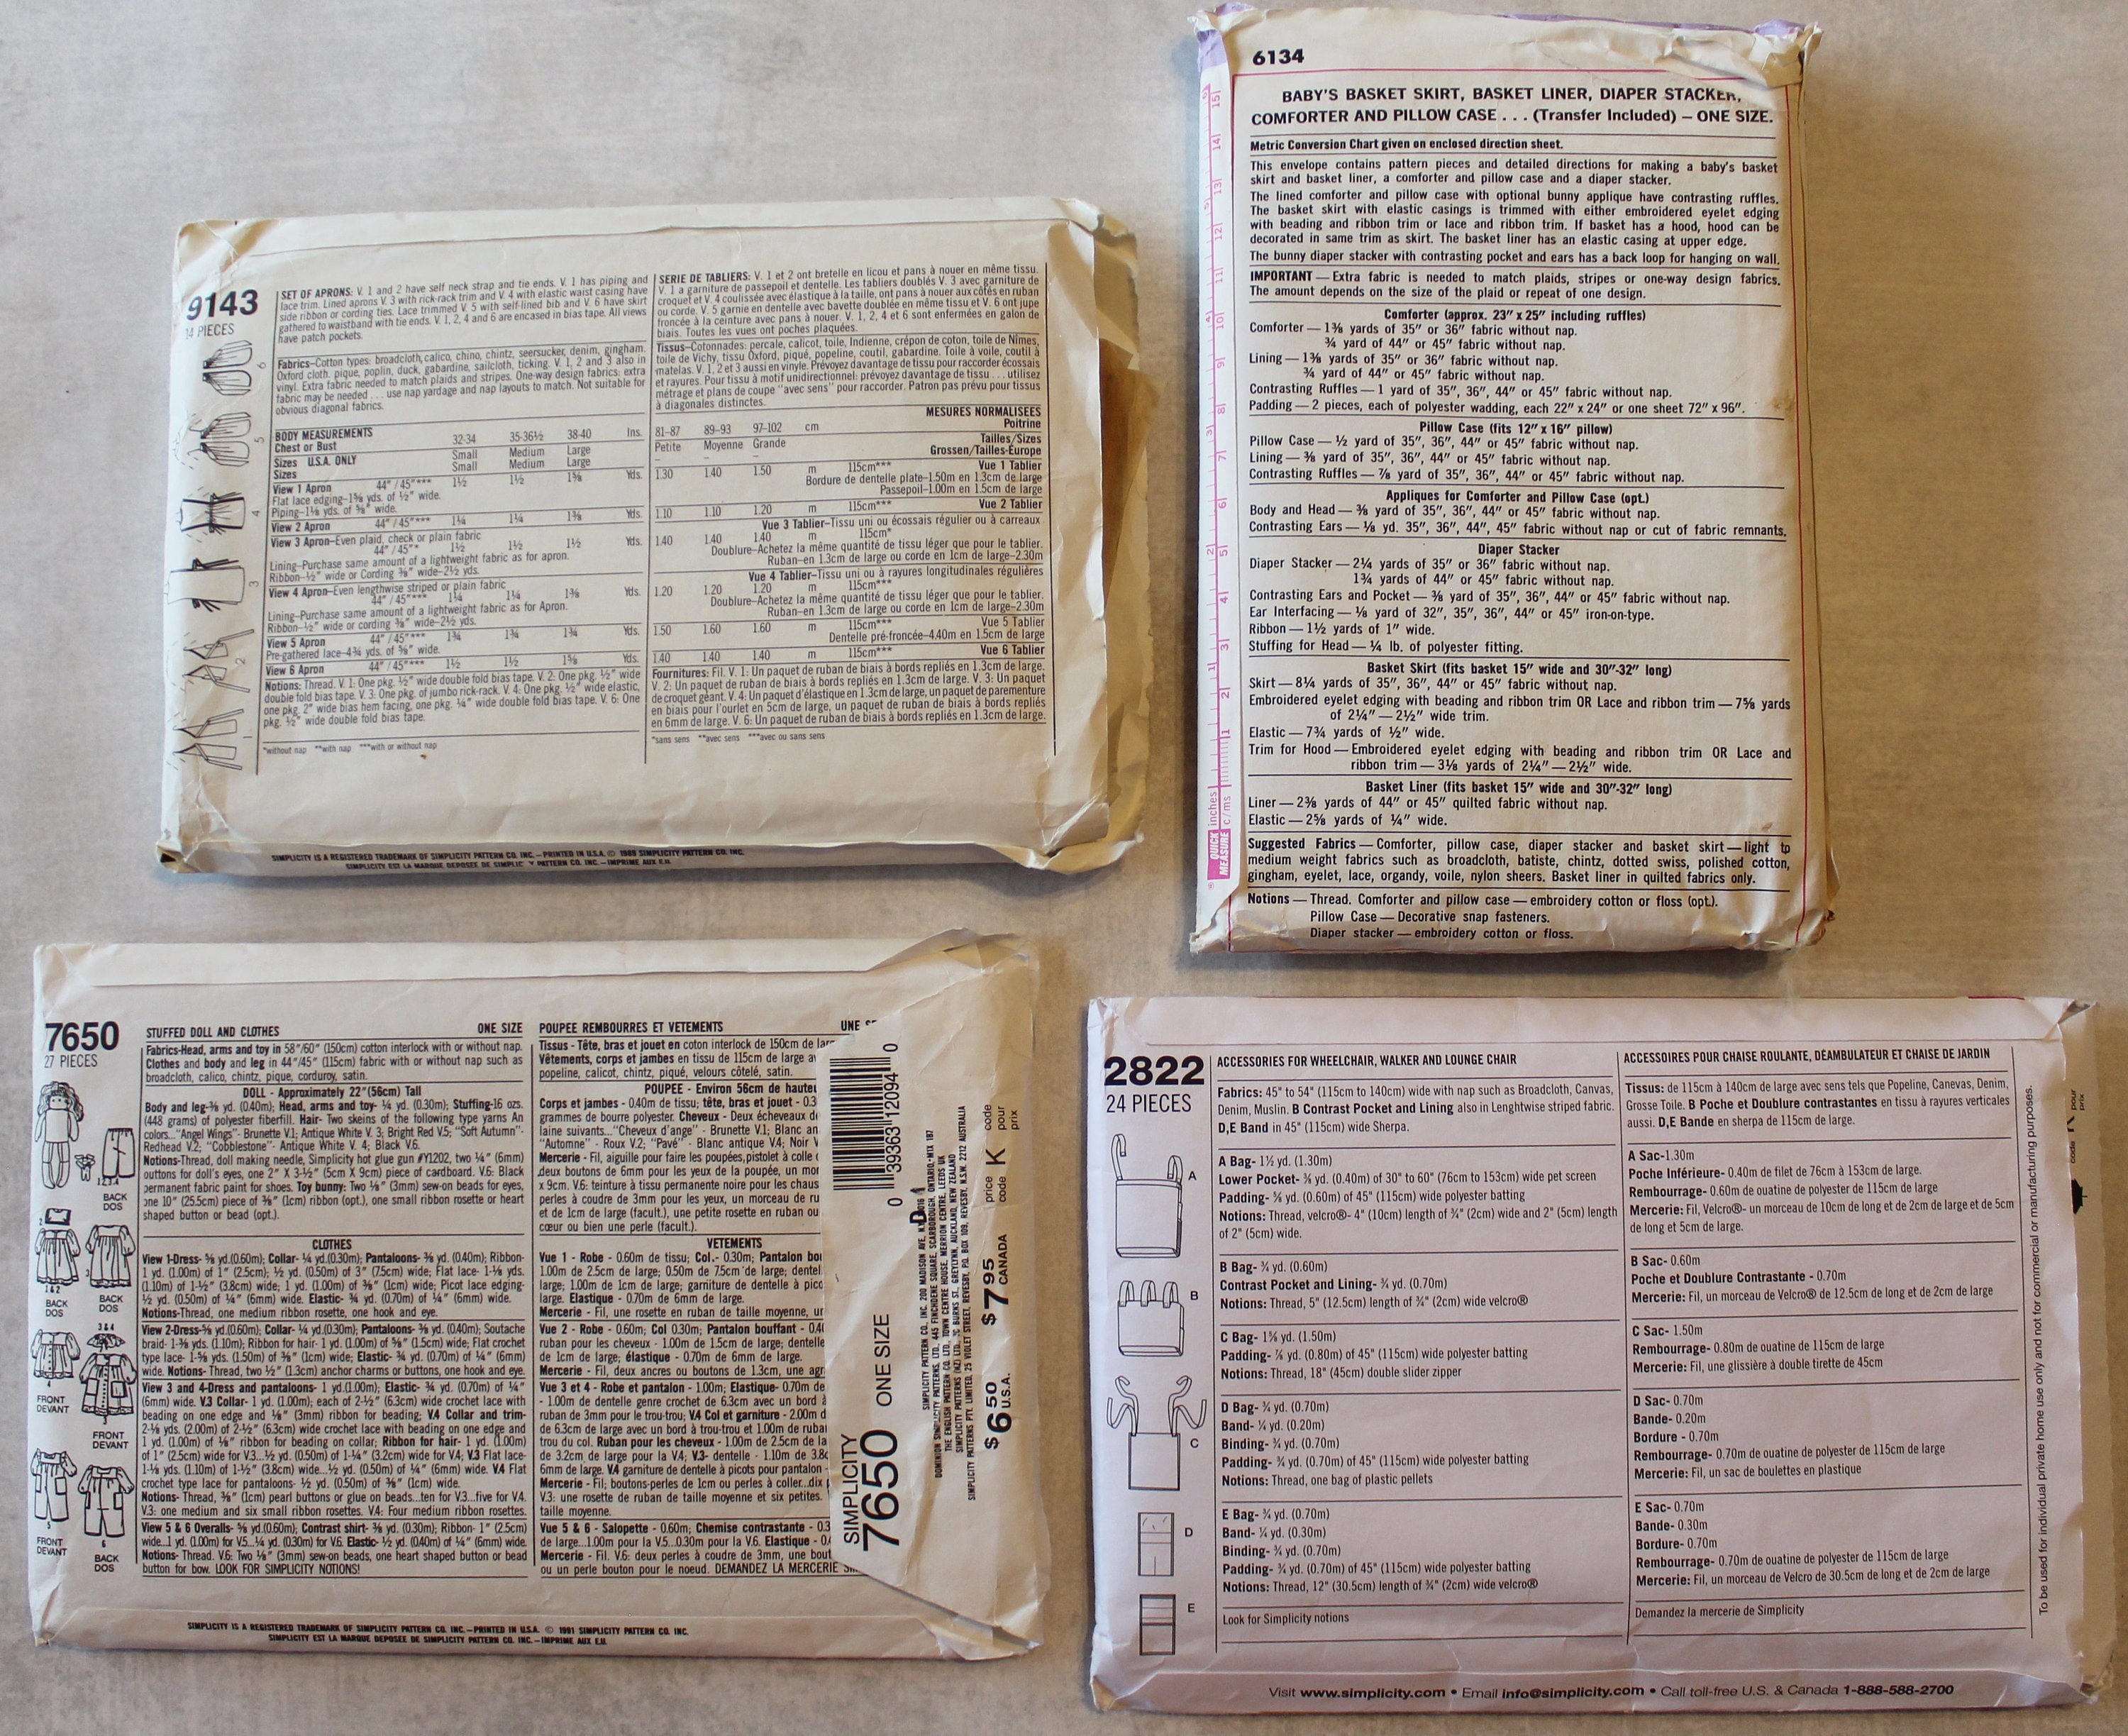 9143
14 PIECES
SET OF APRONS: V. 1 and 2 have self neck strap and tie ends. V. 1 has piping and
lace trim. Lined aprons V. 3 with rick-rack trim and V. 4 with elastic waist casing have
side ribbon or cording ties. Lace trimmed V. 5 with self-lined bib and V. 6 have skirt
gathered to waistband with tie ends. V. 1, 2, 4 and 6 are encased in bias tape. All views
have patch pockets.
Fabrics–Cotton types: broadcloth, calico, chino, chintz, seersucker, denim, gingham,
Oxford cloth, pique, poplin, duck, gabardine, sailcloth, ticking. V. 1, 2 and 3 also in
vinyl. Extra fabric needed to match plaids and stripes. One-way design fabrics: extra
fabric may be needed . . . use nap yardage and nap layouts to match. Not suitable for
obvious diagonal fabrics.
BODY MEASUREMENTS
Chest or Bust 32-34 35-36½ 38-40 Ins.
Sizes U.S.A. ONLY Small Medium Large
Sizes Small Medium Large
View 1 Apron 44"/45"*** 1½ 1½ 1⅝ Yds.
Flat lace edging–1⅝ yds. of ½" wide.
Piping–1⅛ yds. of ⅝" wide.
View 2 Apron 44"/45"*** 1¼ 1¼ 1⅜ Yds.
View 3 Apron–Even plaid, check or plain fabric
44"/45"** 1½ 1½ 1½ Yds.
Lining–Purchase same amount of a lightweight fabric as for apron.
Ribbon–½" wide or Cording ⅜" wide–2½ yds.
View 4 Apron–Even lengthwise striped or plain fabric
44"/45"*** 1¼ 1¼ 1⅜ Yds.
Lining–Purchase same amount of a lightweight fabric as for Apron.
Ribbon–½" wide or cording ⅜" wide–2½ yds.
View 5 Apron 44"/45"*** 1¾ 1¾ 1¾ Yds.
Pre-gathered lace–4¾ yds. of ⅝" wide.
View 6 Apron 44"/45"*** 1½ 1½ 1⅝ Yds.
Notions: Thread. V. 1: One pkg. ½" wide double fold bias tape. V. 2: One pkg. ½" wide
double fold bias tape. V. 3: One pkg. of jumbo rick-rack. V. 4: One pkg. ½" wide elastic,
one pkg. 2" wide bias hem facing, one pkg. ¼" wide double fold bias tape. V. 6: One
pkg. ½" wide double fold bias tape.
*without nap **with nap ***with or without nap
SERIE DE TABLIERS: V. 1 et 2 ont bretelle en licou et pans à nouer en même tissu.
V. 1 a garniture de passepoil et dentelle. Les tabliers doublés V. 3 avec garniture de
croquet et V. 4 coulissée avec élastique à la taille, ont pans à nouer aux côtés en ruban
ou corde. V. 5 garnie en dentelle avec bavette doublée en même tissu et V. 6 ont jupe
froncée à la ceinture avec pans à nouer. V. 1, 2, 4 et 6 sont enfermées en galon de
biais. Toutes les vues ont poches plaquées.
Tissus–Cotonnades: percale, calicot, toile, Indienne, crépon de coton, toile de Nîmes,
toile de Vichy, tissu Oxford, piqué, popeline, coutil, gabardine. Toile à voile, coutil à
matelas. V. 1, 2 et 3 aussi en vinyle. Prévoyez davantage de tissu pour raccorder écossais
et rayures. Pour tissu à motif unidirectionnel: prévoyez davantage de tissu . . . utilisez
métrage et plans de coupe "avec sens" pour raccorder. Patron pas prévu pour tissus
à diagonales distinctes.
MESURES NORMALISEES
81–87 89–93 97-102 cm Poitrine
Petite Moyenne Grande Tailles/Sizes
– – – Grossen/Tailles-Europe
Vue 1 Tablier
1.30 1.40 1.50 m 115cm***
Bordure de dentelle plate–1.50m en 1.3cm de large
Passepoil–1.00m en 1.5cm de large
1.10 1.10 1.20 m 115cm*** Vue 2 Tablier
Vue 3 Tablier–Tissu uni ou écossais régulier ou à carreaux
1.40 1.40 1.40 m 115cm*
Doublure–Achetez la même quantité de tissu léger que pour le tablier.
Ruban–en 1.3cm de large ou corde en 1cm de large–2.30m
Vue 4 Tablier–Tissu uni ou à rayures longitudinales régulières
1.20 1.20 1.20 m 115cm***
Doublure–Achetez la même quantité de tissu léger que pour le tablier.
Ruban–en 1.3cm de large ou corde en 1cm de large–2.30m
1.50 1.60 1.60 m 115cm*** Vue 5 Tablier
Dentelle pré-froncée–4.40m en 1.5cm de large
1.40 1.40 1.40 m 115cm*** Vue 6 Tablier
Fournitures: Fil. V. 1: Un paquet de ruban de biais à bords repliés en 1.3cm de large.
V. 2: Un paquet de ruban de biais à bords repliés en 1.3cm de large. V. 3: Un paquet
de croquet géant. V. 4: Un paquet d'élastique en 1.3cm de large, un paquet de parementure
en biais pour l'ourlet en 5cm de large, un paquet de ruban de biais à bords repliés
en 6mm de large. V. 6: Un paquet de ruban de biais à bords repliés en 1.3cm de large.
*sans sens **avec sens ***avec ou sans sens
6
5
4
3
2
1
SIMPLICITY IS A REGISTERED TRADEMARK OF SIMPLICITY PATTERN CO. INC.–PRINTED IN U.S.A. © 1989 SIMPLICITY PATTERN CO. INC.
SIMPLICITY EST LA MARQUE DEPOSEE DE SIMPLIC Y PATTERN CO. INC.–IMPRIME AUX E.U.
6134
BABY'S BASKET SKIRT, BASKET LINER, DIAPER STACKER,
COMFORTER AND PILLOW CASE . . . (Transfer Included) – ONE SIZE.
Metric Conversion Chart given on enclosed direction sheet.
This envelope contains pattern pieces and detailed directions for making a baby's basket
skirt and basket liner, a comforter and pillow case and a diaper stacker.
The lined comforter and pillow case with optional bunny applique have contrasting ruffles.
The basket skirt with elastic casings is trimmed with either embroidered eyelet edging
with beading and ribbon trim or lace and ribbon trim. If basket has a hood, hood can be
decorated in same trim as skirt. The basket liner has an elastic casing at upper edge.
The bunny diaper stacker with contrasting pocket and ears has a back loop for hanging on wall.
IMPORTANT — Extra fabric is needed to match plaids, stripes or one-way design fabrics.
The amount depends on the size of the plaid or repeat of one design.
Comforter (approx. 23" x 25" including ruffles)
Comforter — 1⅜ yards of 35" or 36" fabric without nap.
¾ yard of 44" or 45" fabric without nap.
Lining — 1⅜ yards of 35" or 36" fabric without nap.
¾ yard of 44" or 45" fabric without nap.
Contrasting Ruffles — 1 yard of 35", 36", 44" or 45" fabric without nap.
Padding — 2 pieces, each of polyester wadding, each 22" x 24" or one sheet 72" x 96".
Pillow Case (fits 12" x 16" pillow)
Pillow Case — ½ yard of 35", 36", 44" or 45" fabric without nap.
Lining — ⅜ yard of 35", 36", 44" or 45" fabric without nap.
Contrasting Ruffles — ⅞ yard of 35", 36", 44" or 45" fabric without nap.
Appliques for Comforter and Pillow Case (opt.)
Body and Head — ⅜ yard of 35", 36", 44" or 45" fabric without nap.
Contrasting Ears — ⅛ yd. 35", 36", 44", 45" fabric without nap or cut of fabric remnants.
Diaper Stacker
Diaper Stacker — 2¼ yards of 35" or 36" fabric without nap.
1¾ yards of 44" or 45" fabric without nap.
Contrasting Ears and Pocket — ⅜ yard of 35", 36", 44" or 45" fabric without nap.
Ear Interfacing — ⅛ yard of 32", 35", 36", 44" or 45" iron-on-type.
Ribbon — 1½ yards of 1" wide.
Stuffing for Head — ¼ lb. of polyester fitting.
Basket Skirt (fits basket 15" wide and 30"-32" long)
Skirt — 8¼ yards of 35", 36", 44" or 45" fabric without nap.
Embroidered eyelet edging with beading and ribbon trim OR Lace and ribbon trim — 7⅝ yards
of 2¼" — 2½" wide trim.
Elastic — 7¾ yards of ½" wide.
Trim for Hood — Embroidered eyelet edging with beading and ribbon trim OR Lace and
ribbon trim — 3⅛ yards of 2¼" — 2½" wide.
Basket Liner (fits basket 15" wide and 30"-32" long)
Liner — 2⅜ yards of 44" or 45" quilted fabric without nap.
Elastic — 2⅝ yards of ¼" wide.
Suggested Fabrics — Comforter, pillow case, diaper stacker and basket skirt — light to
medium weight fabrics such as broadcloth, batiste, chintz, dotted swiss, polished cotton,
gingham, eyelet, lace, organdy, voile, nylon sheers. Basket liner in quilted fabrics only.
Notions — Thread. Comforter and pillow case — embroidery cotton or floss (opt.).
Pillow Case — Decorative snap fasteners.
Diaper stacker — embroidery cotton or floss.
QUICK MEASURE inches c/ms
1 2 3 4 5 6 7 8 9 10 11 12 13 14 15
7650
27 PIECES
STUFFED DOLL AND CLOTHES ONE SIZE
Fabrics-Head, arms and toy in 58"/60" (150cm) cotton interlock with or without nap.
Clothes and body and leg in 44"/45" (115cm) fabric with or without nap such as
broadcloth, calico, chintz, pique, corduroy, satin.
DOLL - Approximately 22"(56cm) Tall
Body and leg-⅜ yd. (0.40m); Head, arms and toy- ¼ yd. (0.30m); Stuffing-16 ozs.
(448 grams) of polyester fiberfill. Hair- Two skeins of the following type yarns An
colors..."Angel Wings"- Brunette V.1; Antique White V. 3; Bright Red V.5; "Soft Autumn"-
Redhead V.2; "Cobblestone"- Antique White V. 4; Black V.6.
Notions-Thread, doll making needle, Simplicity hot glue gun #Y1202, two ¼" (6mm)
buttons for doll's eyes, one 2" X 3-½" (5cm X 9cm) piece of cardboard. V.6: Black
permanent fabric paint for shoes. Toy bunny: Two ⅛" (3mm) sew-on beads for eyes,
one 10" (25.5cm) piece of ⅜" (1cm) ribbon (opt.), one small ribbon rosette or heart
shaped button or bead (opt.).
CLOTHES
View 1-Dress- ⅝ yd.(0.60m); Collar- ¼ yd.(0.30m); Pantaloons- ⅜ yd. (0.40m); Ribbon-
1 yd. (1.00m) of 1" (2.5cm); ½ yd. (0.50m) of 3" (7.5cm) wide; Flat lace- 1-⅛ yds.
(1.10m) of 1-½" (3.8cm) wide; 1 yd. (1.00m) of ⅜" (1cm) wide; Picot lace edging-
½ yd. (0.50m) of ¼" (6mm) wide. Elastic- ¾ yd. (0.70m) of ¼" (6mm) wide.
Notions-Thread, one medium ribbon rosette, one hook and eye.
View 2-Dress-⅝ yd.(0.60m); Collar- ¼ yd.(0.30m); Pantaloons- ⅜ yd. (0.40m); Soutache
braid- 1-⅛ yds. (1.10m); Ribbon for hair- 1 yd. (1.00m) of ⅝" (1.5cm) wide; Flat crochet
type lace- 1-⅝ yds. (1.50m) of ⅜" (1cm) wide; Elastic- ¾ yd. (0.70m) of ¼" (6mm)
wide. Notions- Thread, two ½" (1.3cm) anchor charms or buttons, one hook and eye.
View 3 and 4-Dress and pantaloons- 1 yd.(1.00m); Elastic- ¾ yd. (0.70m) of ¼"
(6mm) wide. V.3 Collar- 1 yd. (1.00m); each of 2-½" (6.3cm) wide crochet lace with
beading on one edge and ⅛" (3mm) ribbon for beading; V.4 Collar and trim-
2-⅛ yds. (2.00m) of 2-½" (6.3cm) wide crochet lace with beading on one edge and
1 yd. (1.00m) of ⅛" ribbon for beading on collar; Ribbon for hair- 1 yd. (1.00m)
of 1" (2.5cm) wide for V.3...½ yd. (0.50m) of 1-¼" (3.2cm) wide for V.4; V.3 Flat lace-
1-⅛ yds. (1.10m) of 1-½" (3.8cm) wide...½ yd. (0.50m) of ¼" (6mm) wide. V.4 Flat
crochet type lace for pantaloons- ½ yd. (0.50m) of ⅜" (1cm) wide.
Notions- Thread, ⅜" (1cm) pearl buttons or glue on beads...ten for V.3...five for V.4.
V.3: one medium and six small ribbon rosettes. V.4: Four medium ribbon rosettes.
View 5 & 6 Overalls- ⅝ yd.(0.60m); Contrast shirt- ⅜ yd. (0.30m); Ribbon- 1" (2.5cm)
wide...1 yd. (1.00m) for V.5...¼ yd. (0.30m) for V.6. Elastic- ½ yd. (0.40m) of ¼" (6mm) wide.
Notions- Thread. V.6: Two ⅛" (3mm) sew-on beads, one heart shaped button or bead
button for bow. LOOK FOR SIMPLICITY NOTIONS!
POUPEE REMBOURRES ET VETEMENTS UNE
Tissus - Tête, bras et jouet en coton interlock de 150cm de
Vêtements, corps et jambes en tissu de 115cm de large
popeline, calicot, chintz, piqué, velours côtelé, satin.
POUPEE - Environ 56cm de
Corps et jambes - 0.40m de tissu; tête, bras et jouet - 0.3
grammes de bourre polyester. Cheveux - Deux écheveaux
laine suivants..."Cheveux d'ange" - Brunette V.1; Blanc
"Automne" - Roux V.2; "Pavé" - Blanc antique V.4; Noir
Mercerie - Fil, aiguille pour faire les poupées, pistolet à colle
deux boutons de 6mm pour les yeux de la poupée, un
x 9cm. V.6: teinture à tissu permanente noire pour les
perles à coudre de 3mm pour les yeux, un morceau de
et de 1cm de large (facult.), une petite rosette en ruban ou
cœur ou bien une perle (facult.).
VETEMENTS
Vue 1 - Robe - 0.60m de tissu; Col.- 0.30m; Pantalon
1.00m de 2.5cm de large; 0.50m de 7.5cm de large;
large; 1.00m de 1cm de large; garniture de dentelle à
large. Elastique - 0.70m de 6mm de large.
Mercerie - Fil, une rosette en ruban de taille moyenne,
Vue 2 - Robe - 0.60m; Col 0.30m; Pantalon bouffant -
ruban pour les cheveux - 1.00m de 1.5cm de large; dentelle
de 1cm de large; élastique - 0.70m de 6mm de large.
Mercerie - Fil, deux ancres ou boutons de 1.3cm, une
Vue 3 et 4 - Robe et pantalon - 1.00m; Elastique- 0.70m de
- 1.00m de dentelle genre crochet de 6.3cm avec un bord à
ruban de 3mm pour le trou-trou; V.4 Col et garniture - 2.00m
de 6.3cm de large avec un bord à trou-trou et 1.00m de
trou du col. Ruban pour les cheveux - 1.00m de 2.5cm de
de 3.2cm de large pour la V.4; V.3- dentelle - 1.10m de
6mm de large. V.4 garniture de dentelle à picots pour pantalon -
Mercerie - Fil; boutons-perles de 1cm ou perles à coller...dix
V.3: une rosette de ruban de taille moyenne et six petites.
taille moyenne.
Vue 5 & 6 - Salopette - 0.60m; Chemise contrastante -
de large...1.00m pour la V.5...0.30m pour la V.6. Elastique -
Mercerie - Fil. V.6: deux perles à coudre de 3mm, une
ou un perle bouton pour le noeud. DEMANDEZ LA MERCERIE
BACK
DOS
1,2,3,4
2
1&2
BACK
DOS
3
BACK
DOS
3&4
4
FRONT
DEVANT
FRONT
DEVANT
5
FRONT
DEVANT
6
BACK
DOS
0 39363 12094 0
SIMPLICITY
7650 ONE SIZE
SIMPLICITY PATTERN CO., INC. 200 MADISON AVE. N.Y. 10016
DOMINION SIMPLICITY PATTERNS, LTD., 445 FINCHDENE SQUARE, SCARBOROUGH, ONTARIO, M1X 1B7
THE ENGLISH PATTERN CO. LTD., TOWN CENTRE HOUSE, MERRION CENTRE, LEEDS UK
SIMPLICITY PATTERNS PTY. LIMITED, 25 VIOLET STREET, REVESBY, P.O. BOX 109, REVESBY, N.S.W. 2212 AUSTRALIA
price code K code pour prix
$6 50 U.S.A. $7 95 CANADA
SIMPLICITY IS A REGISTERED TRADEMARK OF SIMPLICITY PATTERN CO. INC.–PRINTED IN U.S.A. © 1991 SIMPLICITY PATTERN CO. INC.
SIMPLICITY EST LA MARQUE DEPOSEE DE SIMPLICITY PATTERN CO. INC.–IMPRIME AUX E.U.
2822
24 PIECES
ACCESSORIES FOR WHEELCHAIR, WALKER AND LOUNGE CHAIR
Fabrics: 45" to 54" (115cm to 140cm) wide with nap such as Broadcloth, Canvas,
Denim, Muslin. B Contrast Pocket and Lining also in Lenghtwise striped fabric.
D,E Band in 45" (115cm) wide Sherpa.
A Bag- 1½ yd. (1.30m)
Lower Pocket- ⅜ yd. (0.40m) of 30" to 60" (76cm to 153cm) wide pet screen
Padding- ⅝ yd. (0.60m) of 45" (115cm) wide polyester batting
Notions: Thread, velcro®- 4" (10cm) length of ¾" (2cm) wide and 2" (5cm) length
of 2" (5cm) wide.
B Bag- ¾ yd. (0.60m)
Contrast Pocket and Lining- ¾ yd. (0.70m)
Notions: Thread, 5" (12.5cm) length of ¾" (2cm) wide velcro®
C Bag- 1⅝ yd. (1.50m)
Padding- ⅞ yd. (0.80m) of 45" (115cm) wide polyester batting
Notions: Thread, 18" (45cm) double slider zipper
D Bag- ¾ yd. (0.70m)
Band- ¼ yd. (0.20m)
Binding- ¾ yd. (0.70m)
Padding- ¾ yd. (0.70m) of 45" (115cm) wide polyester batting
Notions: Thread, one bag of plastic pellets
E Bag- ¾ yd. (0.70m)
Band- ¼ yd. (0.30m)
Binding- ¾ yd. (0.70m)
Padding- ¾ yd. (0.70m) of 45" (115cm) wide polyester batting
Notions: Thread, 12" (30.5cm) length of ¾" (2cm) wide velcro®
Look for Simplicity notions
ACCESSOIRES POUR CHAISE ROULANTE, DÉAMBULATEUR ET CHAISE DE JARDIN
Tissus: de 115cm à 140cm de large avec sens tels que Popeline, Canevas, Denim,
Grosse Toile. B Poche et Doublure contrastantes en tissu à rayures verticales
aussi. D,E Bande en sherpa de 115cm de large.
A Sac-1.30m
Poche Infèrieure- 0.40m de filet de 76cm à 153cm de large.
Rembourrage- 0.60m de ouatine de polyester de 115cm de large
Mercerie: Fil, Velcro®- un morceau de 10cm de long et de 2cm de large et de 5cm
de long et 5cm de large.
B Sac- 0.60m
Poche et Doublure Contrastante - 0.70m
Mercerie: Fil, un morceau de Velcro® de 12.5cm de long et de 2cm de large
C Sac- 1.50m
Rembourrage- 0.80m de ouatine de 115cm de large
Mercerie: Fil, une glissière à double tirette de 45cm
D Sac- 0.70m
Bande- 0.20m
Bordure - 0.70m
Rembourrage- 0.70m de ouatine de polyester de 115cm de large
Mercerie: Fil, un sac de boulettes en plastique
E Sac- 0.70m
Bande- 0.30m
Bordure- 0.70m
Rembourrage- 0.70m de ouatine de polyester de 115cm de large
Mercerie: Fil, un morceau de Velcro de 30.5cm de long et de 2cm de large
Demandez la mercerie de Simplicity
A
B
C
D
E
To be used for individual private home use only and not for commercial or manufacturing purposes.
code K pour prix
Visit www.simplicity.com • Email info@simplicity.com • Call toll-free U.S. & Canada 1-888-588-2700